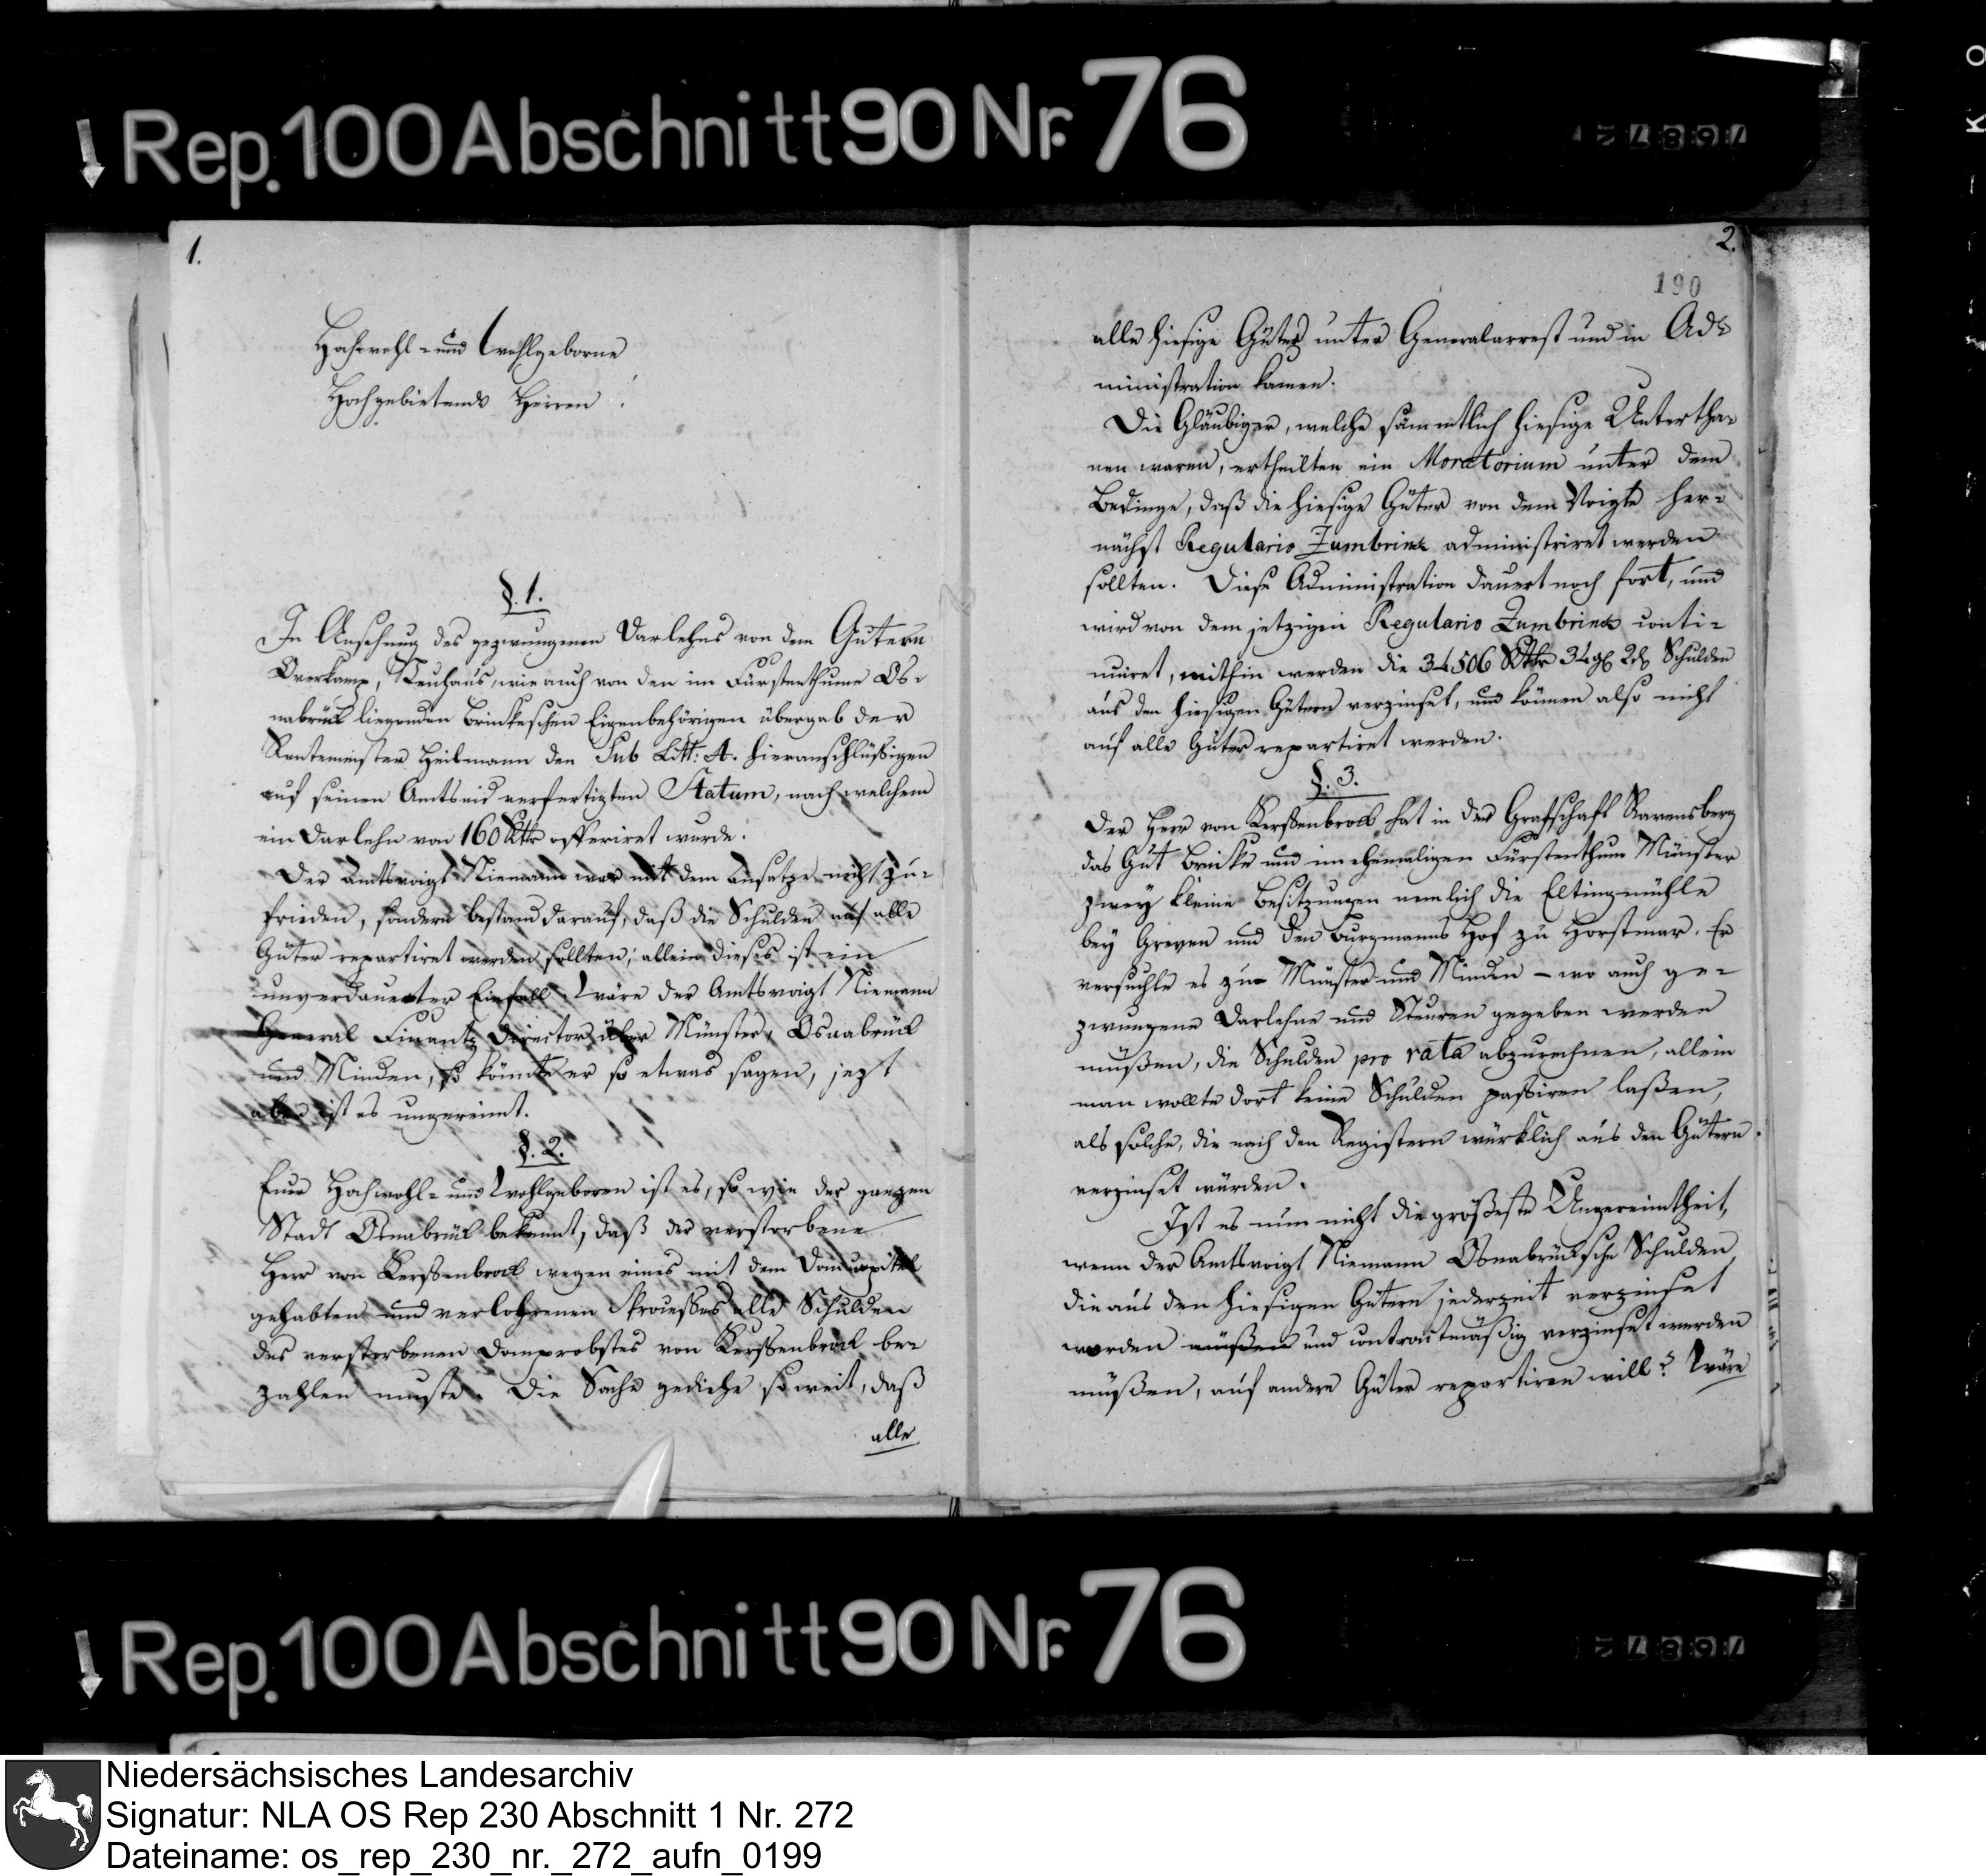 Rep. 100 Abschnitt 90 Nr. 76
1.
Hochwohl- und Wohlgeborne
Hochgebietende Herren!
§. 1.
In Ansehung des gezwungenen Darlehns von dem Gutern
Overkamp, Neuhaus, wie auch von den im Fürstenthume Os-
nabrück liegenden Brinkeschen Eigenbehörigen übergab der
Rentemeister Heilmann den Sub Litt: A. hieranschlüßigen
auf seinen Amtseid verfertigten Statum, nach welchem
ein Darlehn von 160 Rthr offeriret wurde.
Der Amtsvoigt Niemann war mit dem Ansatze nicht zu-
frieden, sondern bestand darauf, daß die Schulden auf alle
Güter repartiret werden sollten; allein dieses ist ein
unverdaueter Einfall. Wäre der Amtsvoigt Niemann
General Finantz Director über Münster, Osnabrück
und Minden, so könnte er so etwas sagen, jezt
aber ist es ungereimt.
§. 2.
Euer Hochwohl- und Wohlgeboren ist es, so wie der ganzen
Stadt Osnabrück bekannt, daß der verstorbene
Herr von Kerßenbrock wegen eines mit dem Domcapitel
gehabten und verlohrenen Proceßes alle Schulden
des verstorbenen Domprobstes von Kerßenbrock be-
zahlen muste. Die Sache gediehe so weit, daß
alle
2.
190
alle hiesige Güter unter Generalarrest und in Ad-
ministration kamen.
Die Gläubiger, welche sämmtlich hiesige Untertha-
nen waren, ertheilten ein Moratorium unter dem
Bedinge, daß die hiesige Güter von dem Voigte her-
nächst Regulario Zumbrinck administriret werden
sollten. Diese Administration dauert noch fort, und
wird von dem jetzigen Regulario Zumbrinck conti-
nuiret, mithin werden die 34506 Rthr 34 2 Schulden
aus den hiesigen Gütern verzinset, und können also nicht
auf alle Güter repartiret werden.
§. 3.
Der Herr von Kerßenbrock hat in der Grafschaft Ravensberg
das Gut Brinke und im ehemaligen Fürstenthum Münster
zwey kleine Besitzungen nemlich die Eltingmühle
bey Greven und den Burgmanns Hof zu Horstmar. Er
versuchte es zu Münster und Minden – wo auch ge-
zwungene Darlehne und Steuren gegeben werden
müßen, die Schulden pro rata abzurechnen, allein
man wollte dort keine Schulden paßiren laßen,
als solche, die nach den Registern würklich aus den Gütern
verzinset würden.
Ist es nun nicht die größeste Ungereimtheit,
wenn der Amtsvoigt Niemann Osnabrücksche Schulden,
die aus den hiesigen Gütern jederzeit verzinset
worden müßen und contractmäßig verzinset werden
müßen, auf andere Güter repartiren will? Wäre
Rep. 100 Abschnitt 90 Nr. 76
Niedersächsisches Landesarchiv
Signatur: NLA OS Rep 230 Abschnitt 1 Nr. 272
Dateiname: os_rep_230_nr._272_aufn_0199